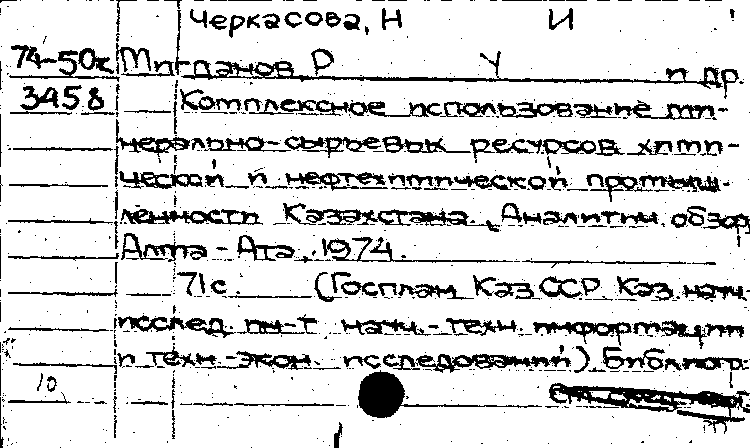 Черкасова, Н И
74-50к Мигданов Р У и др.
3458 Комплексное использование ми-
нерально-сырьевых ресурсов хими-
ческой и нефтехимической промыш-
ленности Казахстана. Аналитич. обзор
Алма-Ата, 1974.
71с. (Госплан КазССР Каз. науч.-
исслед. ин-т науч.-техн. информации
и техн.-экон. исследований) Библиогр.
10